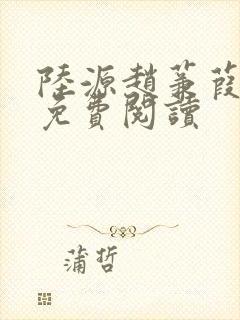 陸源趙蒹葭
免費閱讀
蒲哲